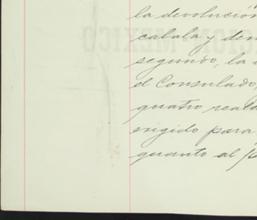 la devolución
cabala y den
segundo, la
el Consulado,
quatro reale
exigido para
quanto al p